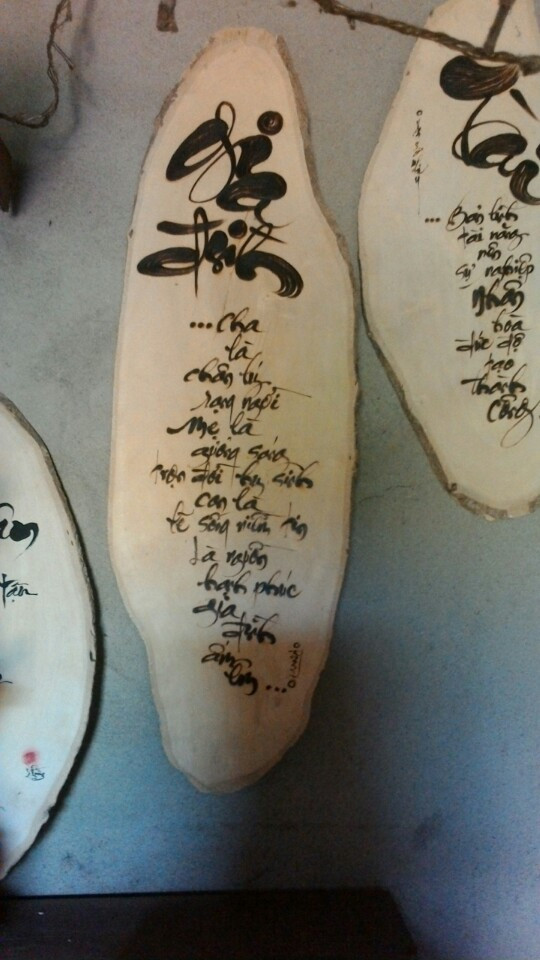 gia
đình
... cha
là
chân lý
rạng ngời
Mẹ là
gương sáng
trọn đời hy sinh
con là
lẽ sống niềm tin
Là nguồn
hạnh phúc
gia
đình
ấm
êm ...
tài
... Bản lĩnh
tài năng
nên
sự nghiệp
nhân
hòa
đức độ
tạo
thành
công
tận